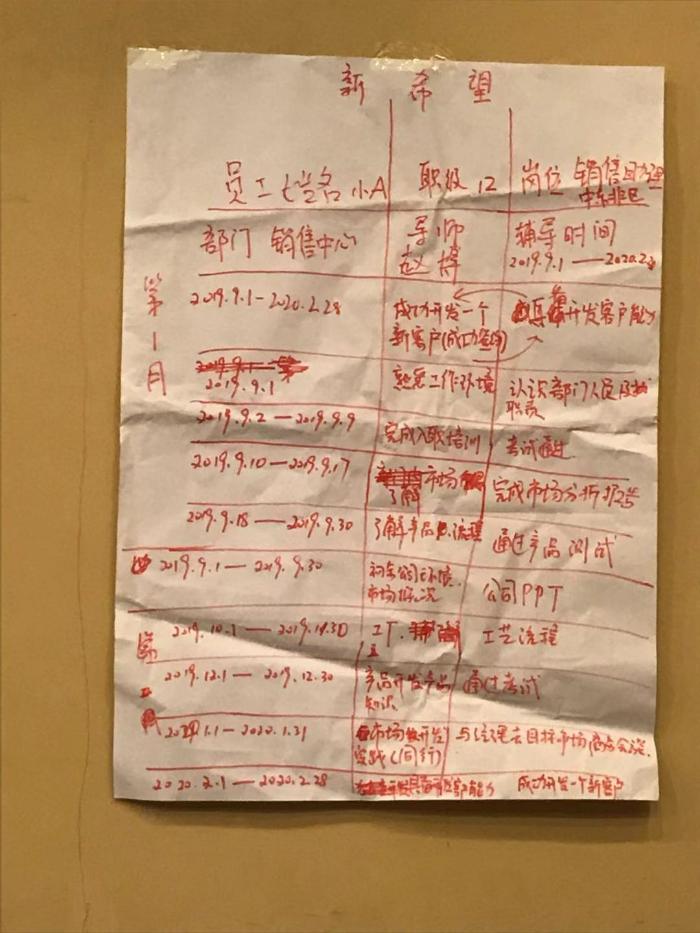 新 希 望
员工姓名 小A 职级 12 岗位 销售经理
中东非区
部门 销售中心 导师 辅导时间
赵博 2019.9.1 —— 2020.2.28
第1月
2019.9.1 - 2020.2.28 成功开发一个 具备开发客户能力
新客户(成功签约)
2019.9.1 熟悉工作环境 认识部门人员及
职责
2019.9.2 — 2019.9.9 完成入职培训 考试通过
2019.9.10 — 2019.9.17 市场 完成市场分析报告
了解
2019.9.18 — 2019.9.30 了解产品 流程 通过产品测试
2019.9.1 — 2019.9.30 公司环境 公司PPT
市场概况
2019.10.1 — 2019.11.30 工厂 工艺流程
2019.12.1 — 2019.12.30 产品开发产品 通过考试
知识
1.1 — 2020.1.31 市场开发 与经理去目标市场商务会谈
实践(同行)
2020.2.1 — 2020.2.28 客户能力 成功开发一个新客户